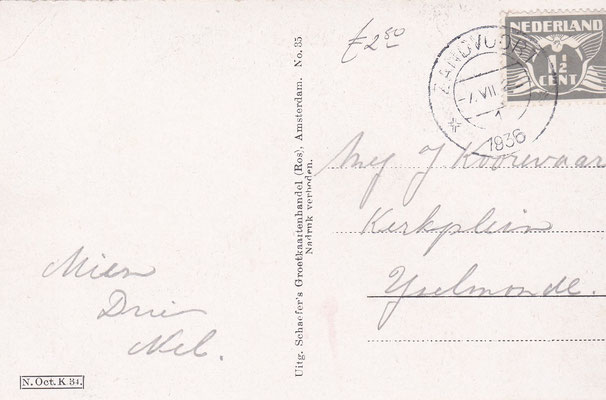 £2⁵⁰
NEDERLAND
1½
CENT
ZANDVOORT
7.VII
1936
Mej J Koorevaar
Kerkplein
Yselmonde.
Mien
Drie
Nel.
Uitg. Schaefer's Groetkaartenhandel (Ros), Amsterdam. No. 35
Nadruk verboden.
N. Oct. K 34.